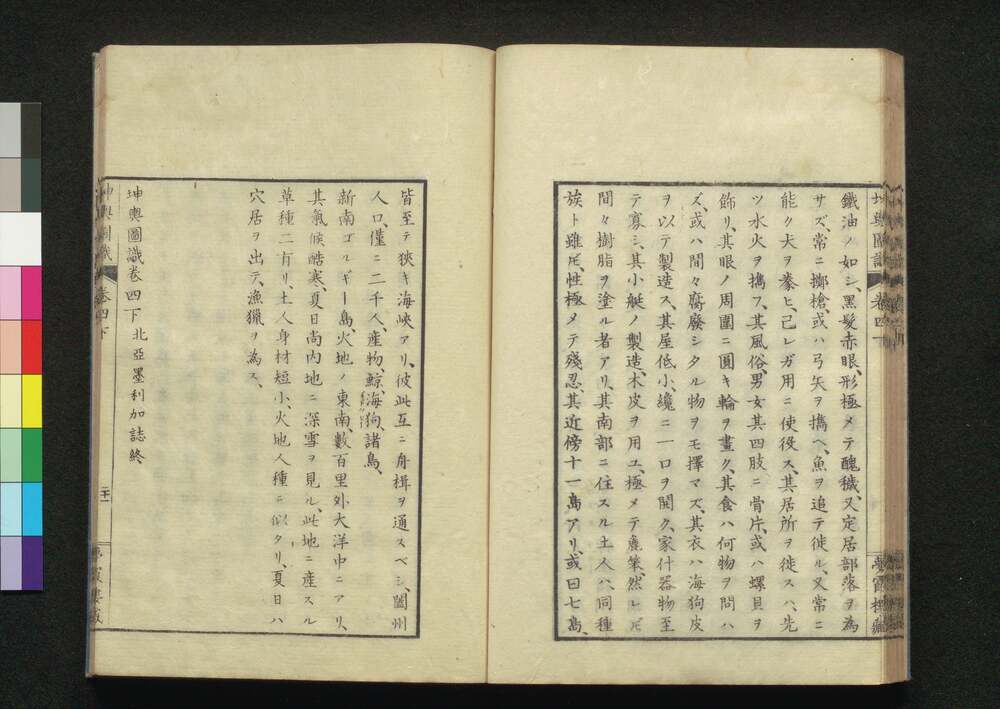 鐵油ノ如シ、黒髮赤眼、形極メテ醜穢、又定居部落ヲ為
サズ、常ニ擲槍、或ハ弓矢ヲ携ヘ、魚ヲ追テ徙ル、又常ニ
能ク犬ヲ養ヒ、己レガ用ニ使役ス、其居所ヲ徙スハ、先
ツ水火ヲ携フ、其風俗、男女其四肢ニ骨片、或ハ螺貝ヲ
飾リ、其眼ノ周圍ニ圓キ輪ヲ畫ク、其食ハ何物ヲ問ハ
ズ、或ハ間々腐廢シタル物ヲモ擇マズ、其衣ハ海狗皮
ヲ以テ製造ス、其屋低小、纔ニ一口ヲ開ク、家什器物至
テ寡シ、其小艇ノ製造、木皮ヲ用ユ、極メテ麁笨、然レ𪜈
間々樹脂ヲ塗ル者アリ、其南部ニ住スル土人ハ、同種
族ト雖𪜈、性極メテ殘忍、其近傍十一島アリ、或曰七島、
坤輿圖識
卷四下
皆至テ狹キ海峽アリ、彼此互ニ舟楫ヲ通スベシ、闔州
人口、僅ニ二千人、産物、鯨、海狗、諸鳥、
新南ゴルギー島、火地ノ東南、數百里外大洋中ニアリ、
其氣候酷寒、夏日尚内地ニ深雪ヲ見ル、此地ニ産スル
草種二有リ、土人身材短小、火地人種ニ似タリ、夏日ハ
穴居ヲ出テ、漁獵ヲ為ス、
坤輿圖識卷四下 北亞墨利加誌終
坤輿圖識
卷四下
二十一